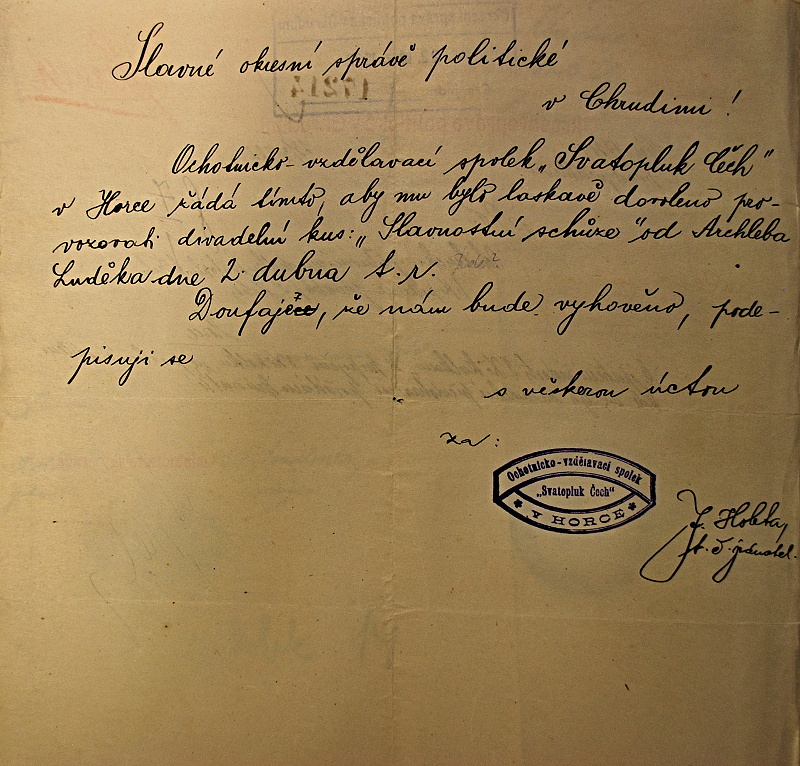 Slavné okresní správě politické
v Chrudimi!
Ochotnicko-vzdělavací spolek „Svatopluk Čech"
v Horce žádá tímto, aby mu bylo laskavě dovoleno pro-
vozovati divadelní kus: „Slavnostní schůze" od Archleba
Luděka dne 2. dubna t. r.
Doufaje, že nám bude vyhověno, pode-
pisuji se
s veškerou úctou
za:
Ochotnicko-vzdělavací spolek
„Svatopluk Čech"
V HORCE
t. č. jednatel.
17214